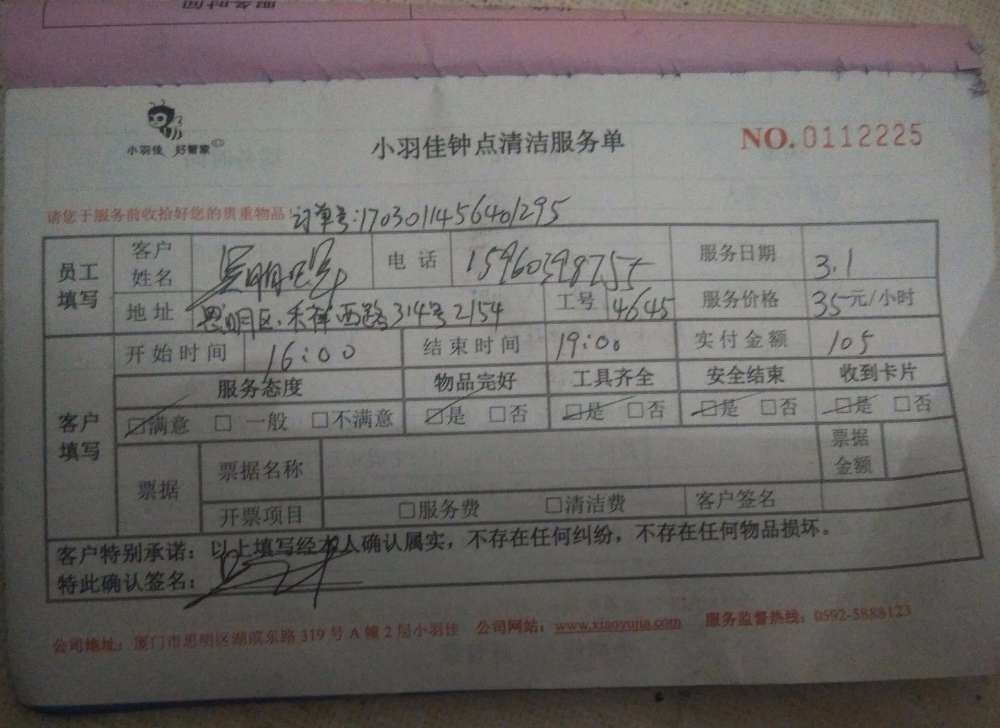 小羽佳 好管家
小羽佳钟点清洁服务单
NO.0112225
请您于服务前收拾好您的贵重物品!
订单号:1703011456401295
员工填写 客户姓名 电话 服务日期 3.1
地址 思明区 禾祥西路314号2154 工号 4645 服务价格 35元/小时
客户填写 开始时间 16:00 结束时间 19:00 实付金额 105
服务态度 物品完好 工具齐全 安全结束 收到卡片
☑满意 □一般 □不满意 ☑是 □否 ☑是 □否 ☑是 □否 ☑是 □否
票据 票据名称 票据金额
开票项目 □服务费 □清洁费 客户签名
客户特别承诺:以上填写经本人确认属实,不存在任何纠纷,不存在任何物品损坏。
特此确认签名:
公司地址:厦门市思明区湖滨东路319号A幢2层小羽佳 公司网站:www.xiaoyujia.com 服务监督热线:0592-5888123